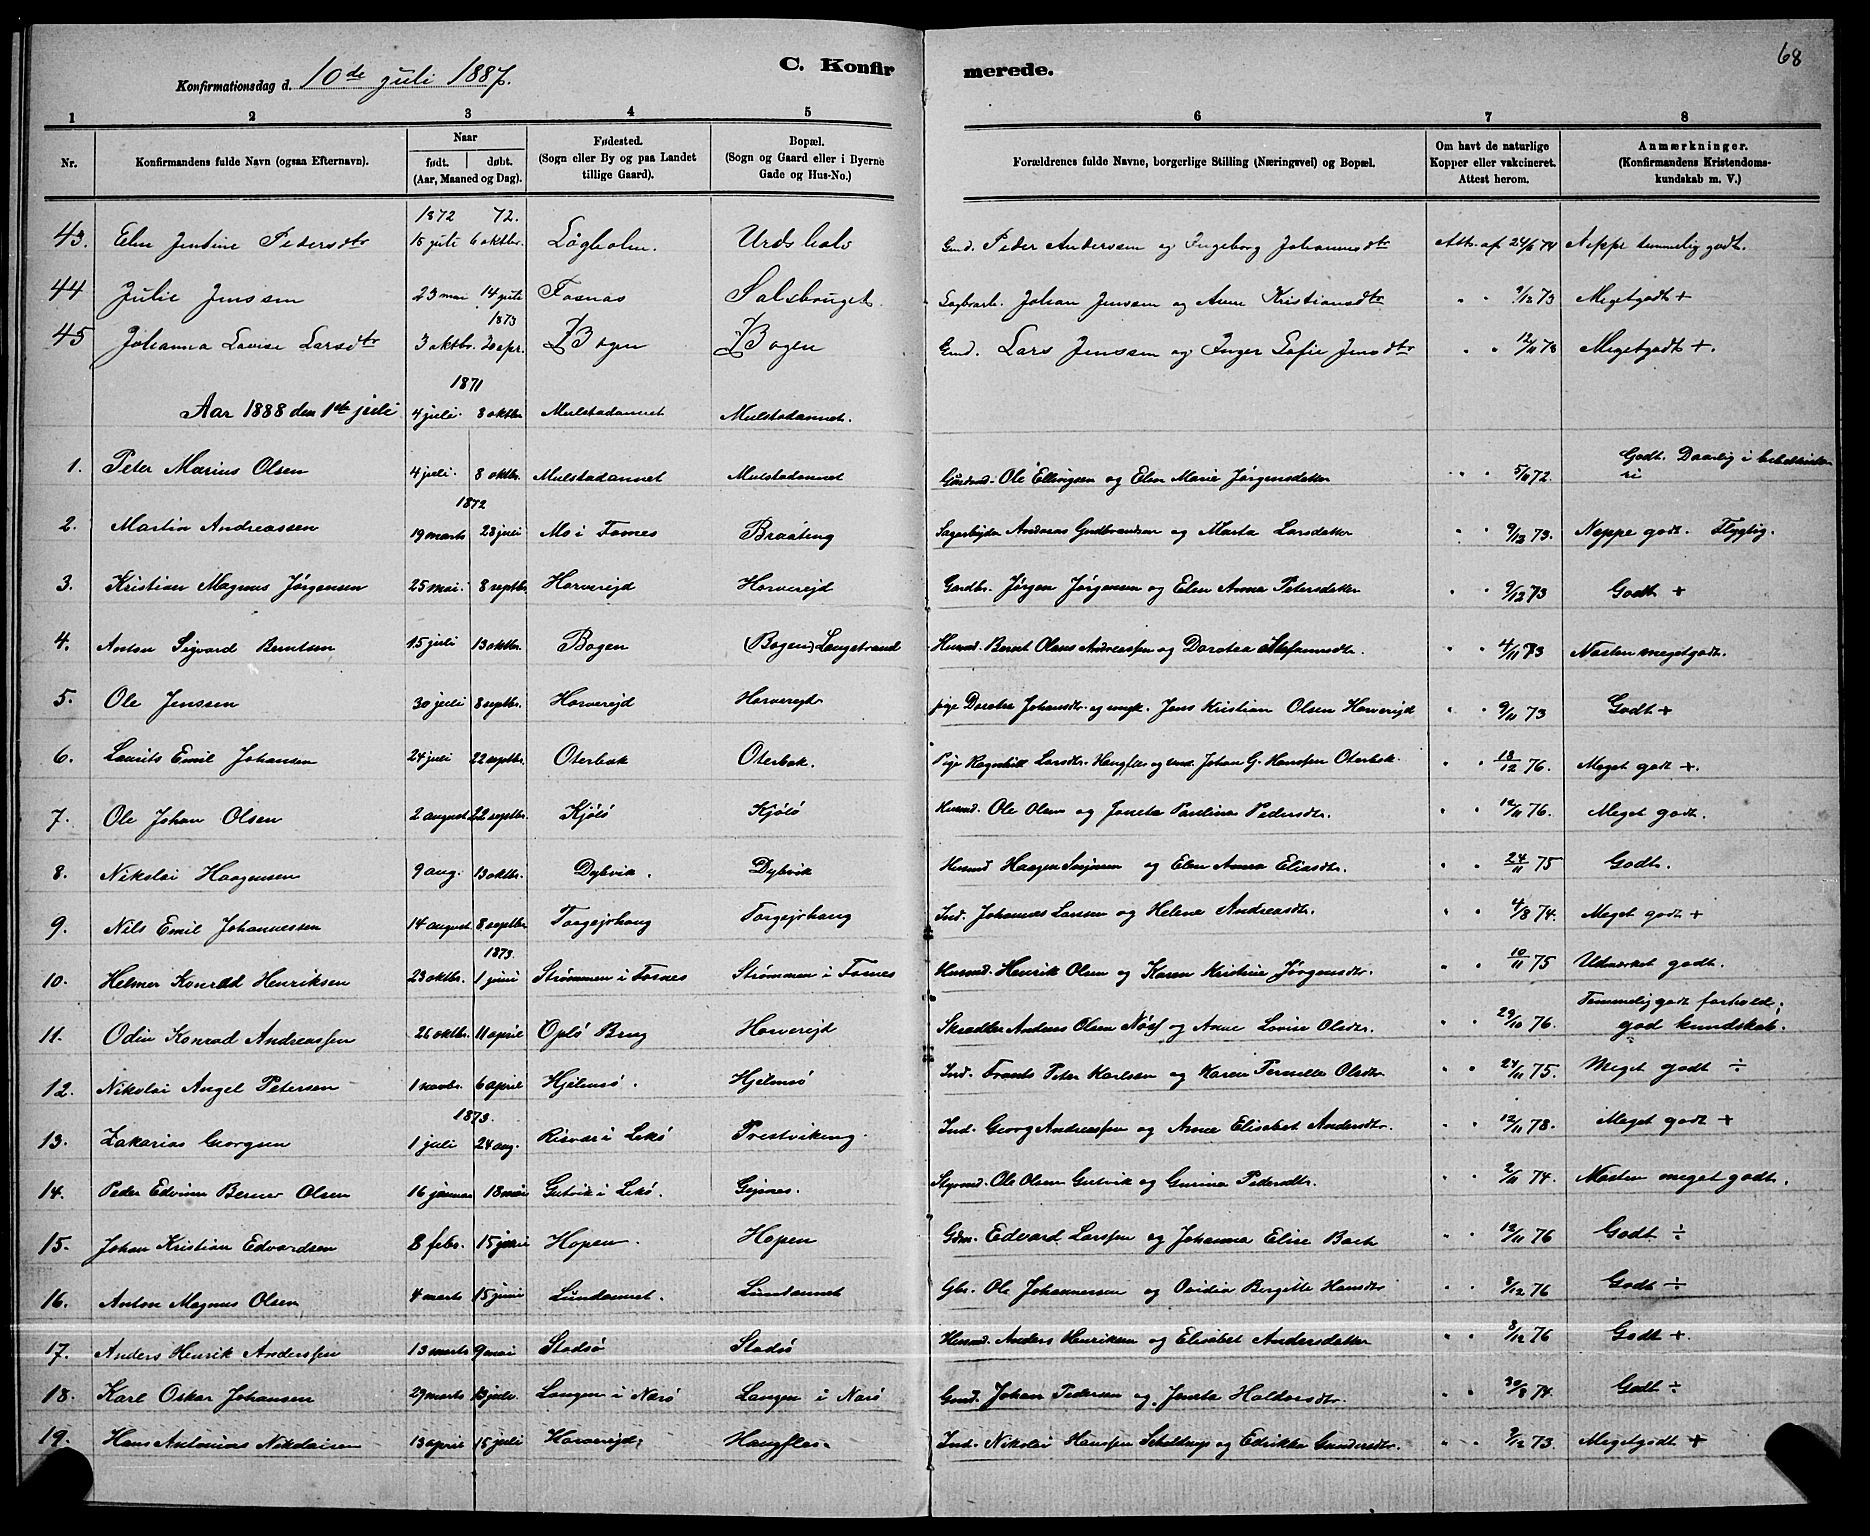 68
Konfirmationsdag d. 10de juli 1887.
C. Konfir merede.
1 2 3 4 5 6 7 8
Nr. Konfirmandens fulde Navn (ogsaa Efternavn). Naar født. døbt. (Aar, Maaned og Dag). Fødested. (Sogn eller By og paa Landet tillige Gaard). Bopæl. (Sogn og Gaard eller i Byerne Gade og Hus-No.) Forældrenes fulde Navne, borgerlige Stilling (Næringsvei) og Bopæl. Om havt de naturlige Kopper eller vakcineret. Attest herom. Anmærkninger. (Konfirmandens Kristendoms-kundskab m. V.)
1872 72.
43. Elen Jentine Pedersdtr 15 juli 6 oktbr. Løgholm. Urdshals Gmd. Peder Andersen og Ingeborg Johannesdtr Att. af 24/6 74 Neppe temmelig godt.
44 Julie Jenssen 23 mai 14 juli Fosnæs Salsbruget Johan Jenssen og Anne Kristiansdtr " " 9/12 73 Megetgodt +
1873
45 Johanna Lovise Larsdtr 3 oktbr. 20 apr. Bogen Bogen Gmd. Lars Jenssen og Inger Sofie Jensdtr " " 12/11 73 Megetgodt +.
1871
Aar 1888 den 1ste juli 4 juli. 8 oktbr. Mulstadannet Mulstadannet.
1. Peter Marius Olsen 4 juli. 8 oktbr. Mulstadannet Mulstadannet Gaardmd. Ole Ellingsen og Elen Marie Jørgensdatter " " 5/11 72. Godt. Daarlig i
1872
2. Martin Andreassen 19 marts 28 juli Mo i Fosnes Braating Sagarbejder Andreas Gudbrandsen og Marta Larsdatter " " 9/12 73. Neppe godt. Flygtig.
3. Kristian Magnus Jørgensen 25 mai. 8 septbr. Horverejd Horverejd Gardbr. Jørgen Jørgensen og Elen Anna Petersdatter " " 9/12 73 Godt +
4. Anton Sigvard Berntsen 15 juli 13 oktbr. Bogen (Bogen) Langstrand Husmd. Bernt Olaus Andreassen og Dorotea Stefansdtr. " " 4/11 73 Næsten megetgodt.
5. Ole Jenssen 30 juli 8 septbr. Horverejd Horverejd pige Dorotea Johansdtr. og ungk. Jens Kristian Olsen Horverejd " " 9/11 73 Godt +
6. Laurits Emil Johansen 24 juli 22 septbr. Oterbæk Oterbæk. Pige Ragnhild Larsdtr. Haugfles og Johan G. Hanssen Oterbæk. " " 18/12 76. Meget godt +.
7. Ole Johan Olsen 2 august 22 septbr. Kjølø Kjølø Husmd. Ole Olsen og Joneta Paulina Pedersdtr. " " 12/11 76. Meget godt.
8. Nikolai Haagensen 9 aug. 13 oktbr. Dybvik. Dybvik Husmd Haagen og Elen Anna Eliasdtr. " " 24/11 75 Godt.
9. Nils Emil Johannessen 14 august 8 septbr Torgejrhaug Torgejrhaug Ind. Johannes Larsen og Helena Andreasdtr. " " 4/8 74. Meget godt +
1873.
10. Helmer Konrad Henriksen 23 oktbr. 1 juni Strømmen i Fosnes Strømmen i Fosnes Husmd. Henrik Olsen og Karen Kristine Jørgensdtr. " " 10/11 75 Udmærket godt.
11. Odin Konrad Andreassen 26 oktbr. 11 april Oplø Brug Horverejd Skrædder Andreas Olsen og Anne Lovise Olsdtr. " " 29/10 76. Temmelig godt forhold; god kundskab.
12. Nikolai Angel Petersen 1 novbr. 6 april Hjelmsø. Hjelmsø Ind. Frants Peter Karlsen og Karen Pernille Olsdtr " " 24/11 75. Meget godt ÷
1873.
13. Zakarias Georgsen 1 juli 24 aug. Risvær i Lekø Prestviking. Ind. Georg Andreassen og Anne Elisabet Andersdtr. " " 12/11 78. Meget godt +
14. Peder Edvin Berner Olsen 16 januar 18 mai Gutvik i Lekø. Gejsnes. Styrmd. Ole Olsen Gutvik og Gurina Pedersdtr. " " 2/11 74. Næsten megetgodt.
15. Johan Kristian Edvardsen 8 febr. 15 juni Hopen. Hopen Gdm. Edvard Larssen og Johanna Elise " " 12/11 76 Godt ÷
16. Anton Magnus Olsen 4 marts 15 juni Lundannet. Lundannet Gbr. Ole Johannessen og Ovidia Bergitte Hansdtr " " 8/12 76 Godt ÷
17. Anders Henrik Anderssen 13 marts 9 mai Stadsø Stadsø Husmd. Anders Henriksen og Elisabet Andersdatter " " 8/12 76 Godt +.
18. Karl Oskar Johansen 29 marts 13 juli. Langen i Nærø Langen i Nærø Gmd. Johan Pedersen og Joneta Haldorsdtr. " " 30/8 74. Godt ÷
19. Hans Antonius Nikolaisen 13 april 15 juli Horverejd Haugfles Ind. Nikolai Hanssen og Edrikka Gundersdtr. " " 9/12 73. Megetgodt +